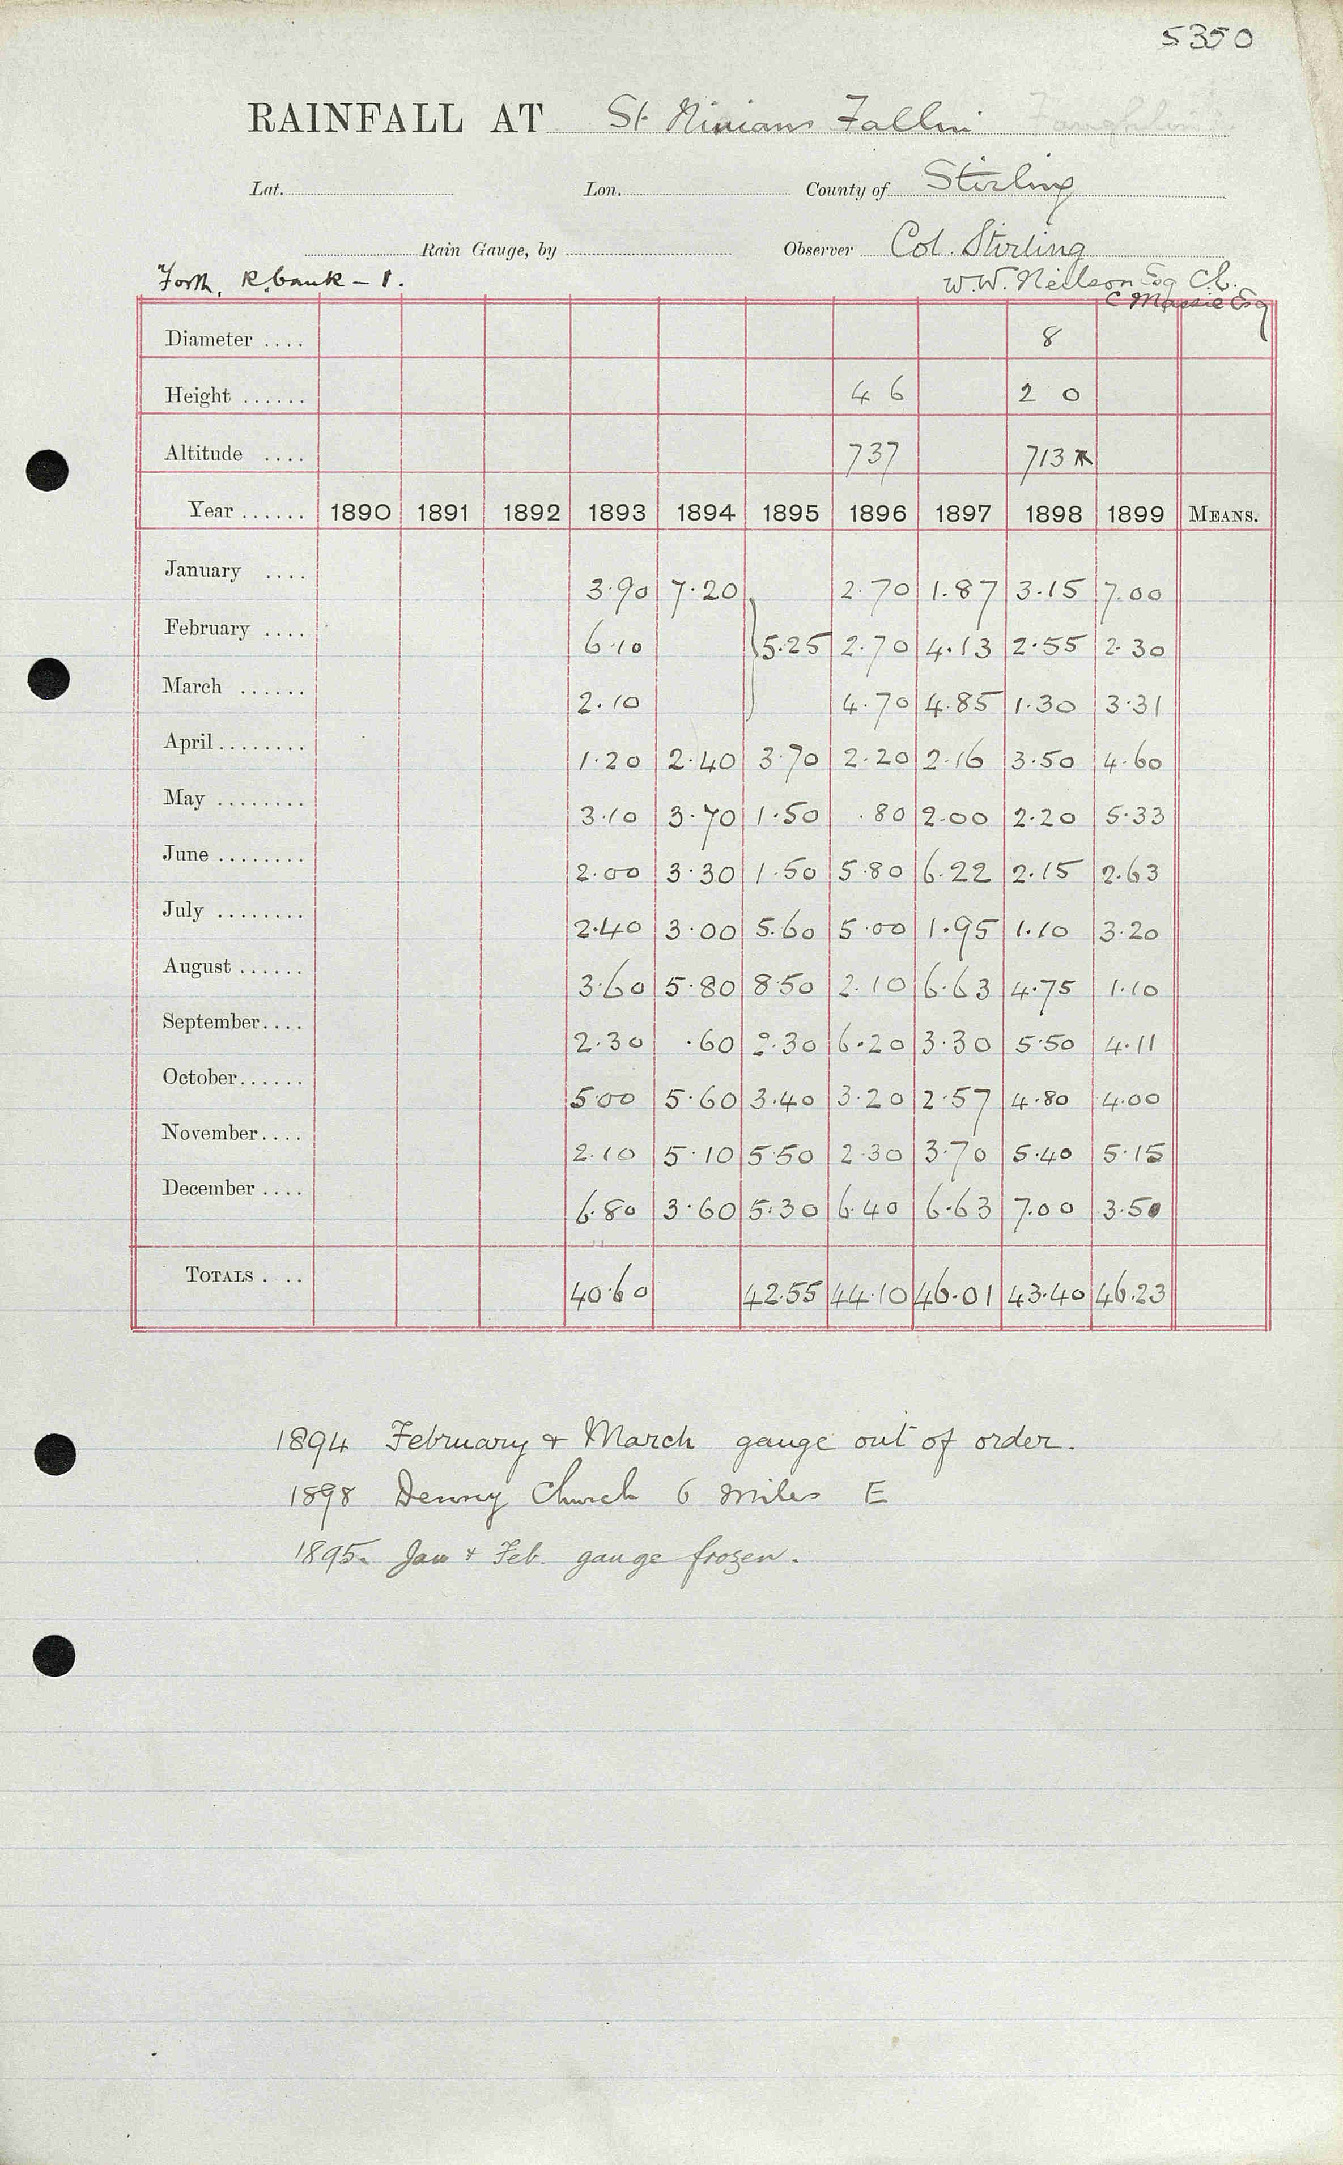 5350
RAINFALL AT St Ninians Fallin
Lat. Lon. County of Stirling
Rain Gauge, by Observer Col. Stirling
Forth, R. bank - 1. W.W. Neilson Esq Ch.
C Massie Esq
Diameter .... 8
Height ...... 4 6 2 0
Altitude .... 737 713
Year ...... 1890 1891 1892 1893 1894 1895 1896 1897 1898 1899 MEANS.
January .... 3.90 7.20 2.70 1.87 3.15 7.00
February .... 6.10 5.25 2.70 4.13 2.55 2.30
March ...... 2.10 4.70 4.85 1.30 3.31
April ........ 1.20 2.40 3.70 2.20 2.16 3.50 4.60
May ........ 3.10 3.70 1.50 .80 2.00 2.20 5.33
June ........ 2.00 3.30 1.50 5.80 6.22 2.15 2.63
July ........ 2.40 3.00 5.60 5.00 1.95 1.10 3.20
August ...... 3.60 5.80 8.50 2.10 6.63 4.75 1.10
September.... 2.30 .60 2.30 6.20 3.30 5.50 4.11
October...... 5.00 5.60 3.40 3.20 2.57 4.80 4.00
November.... 2.10 5.10 5.50 2.30 3.70 5.40 5.15
December .... 6.80 3.60 5.30 6.40 6.63 7.00 3.50
TOTALS . .. 40.60 42.55 44.10 46.01 43.40 46.23
1894 February & March gauge out of order.
1898 Denny Church 6 miles E
1895. Jan & Feb. gauge frozen.